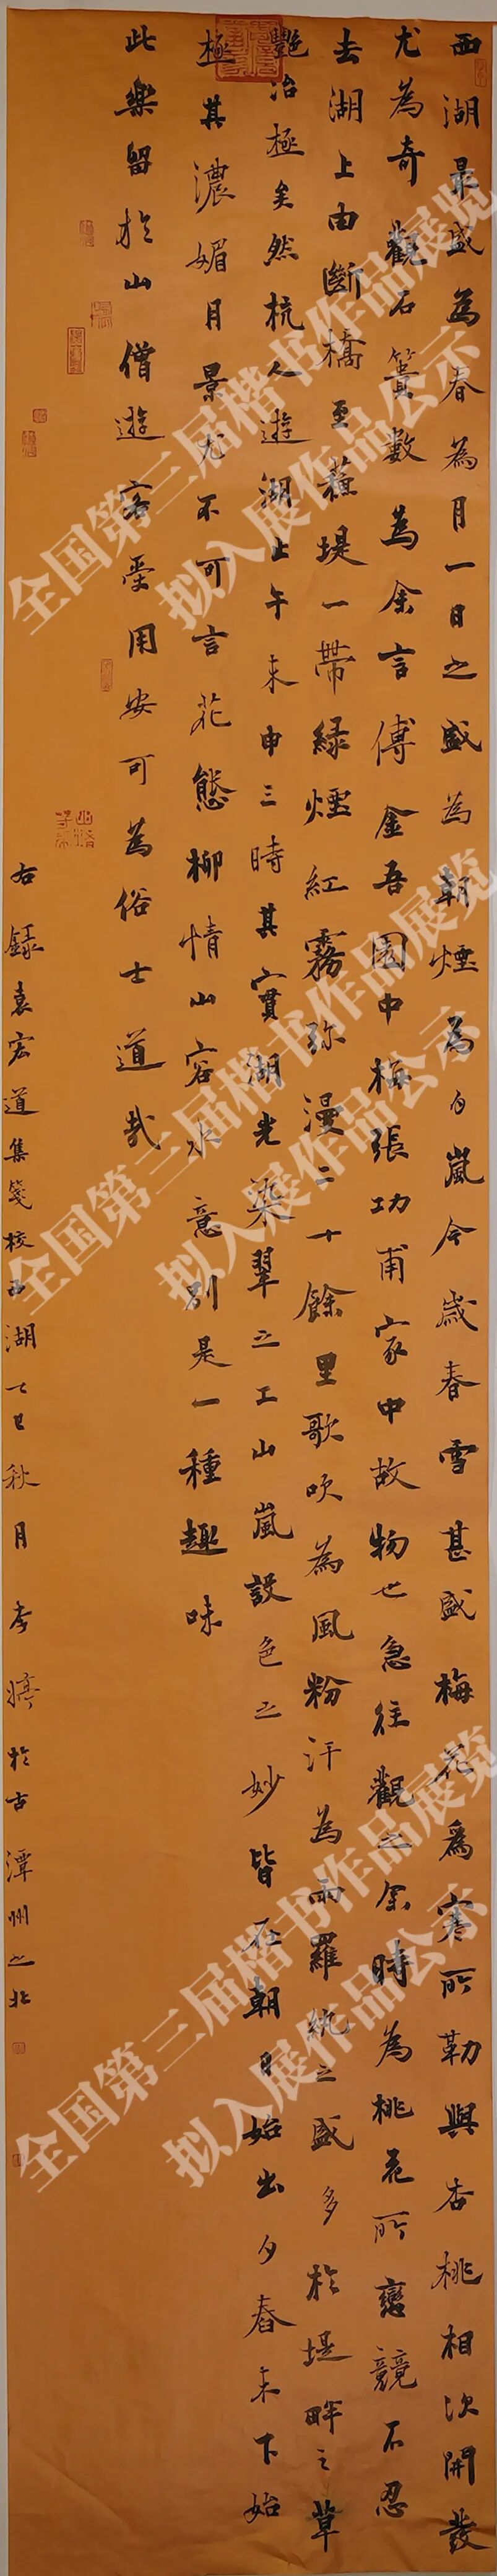 西湖最盛為春為月一日之盛為朝煙為夕嵐今歲春雪甚盛梅花為寒所勒與杏桃相次開發
尤為奇觀石簣數為余言傅金吾園中梅張功甫家中故物也急往觀之余時為桃花所戀競不忍
去湖上由斷橋至蘇堤一帶綠煙紅霧弥漫二十餘里歌吹為風粉汗為雨羅紈之盛多於堤畔之草
艷冶極矣然杭人遊湖止午未申三時其實湖光染翠之工山嵐設色之妙皆在朝日始出夕舂未下始
極其濃媚月景尤不可言花態柳情山容水意別是一種趣味
此樂留於山僧遊客受用安可為俗士道哉
右錄袁宏道集箋校西湖乙巳秋月李於古潭州之北
全国第三届楷书作品展览
拟入展作品公示
全国第三届楷书作品展览
拟入展作品公示
全国第三届楷书作品展览
拟入展作品公示